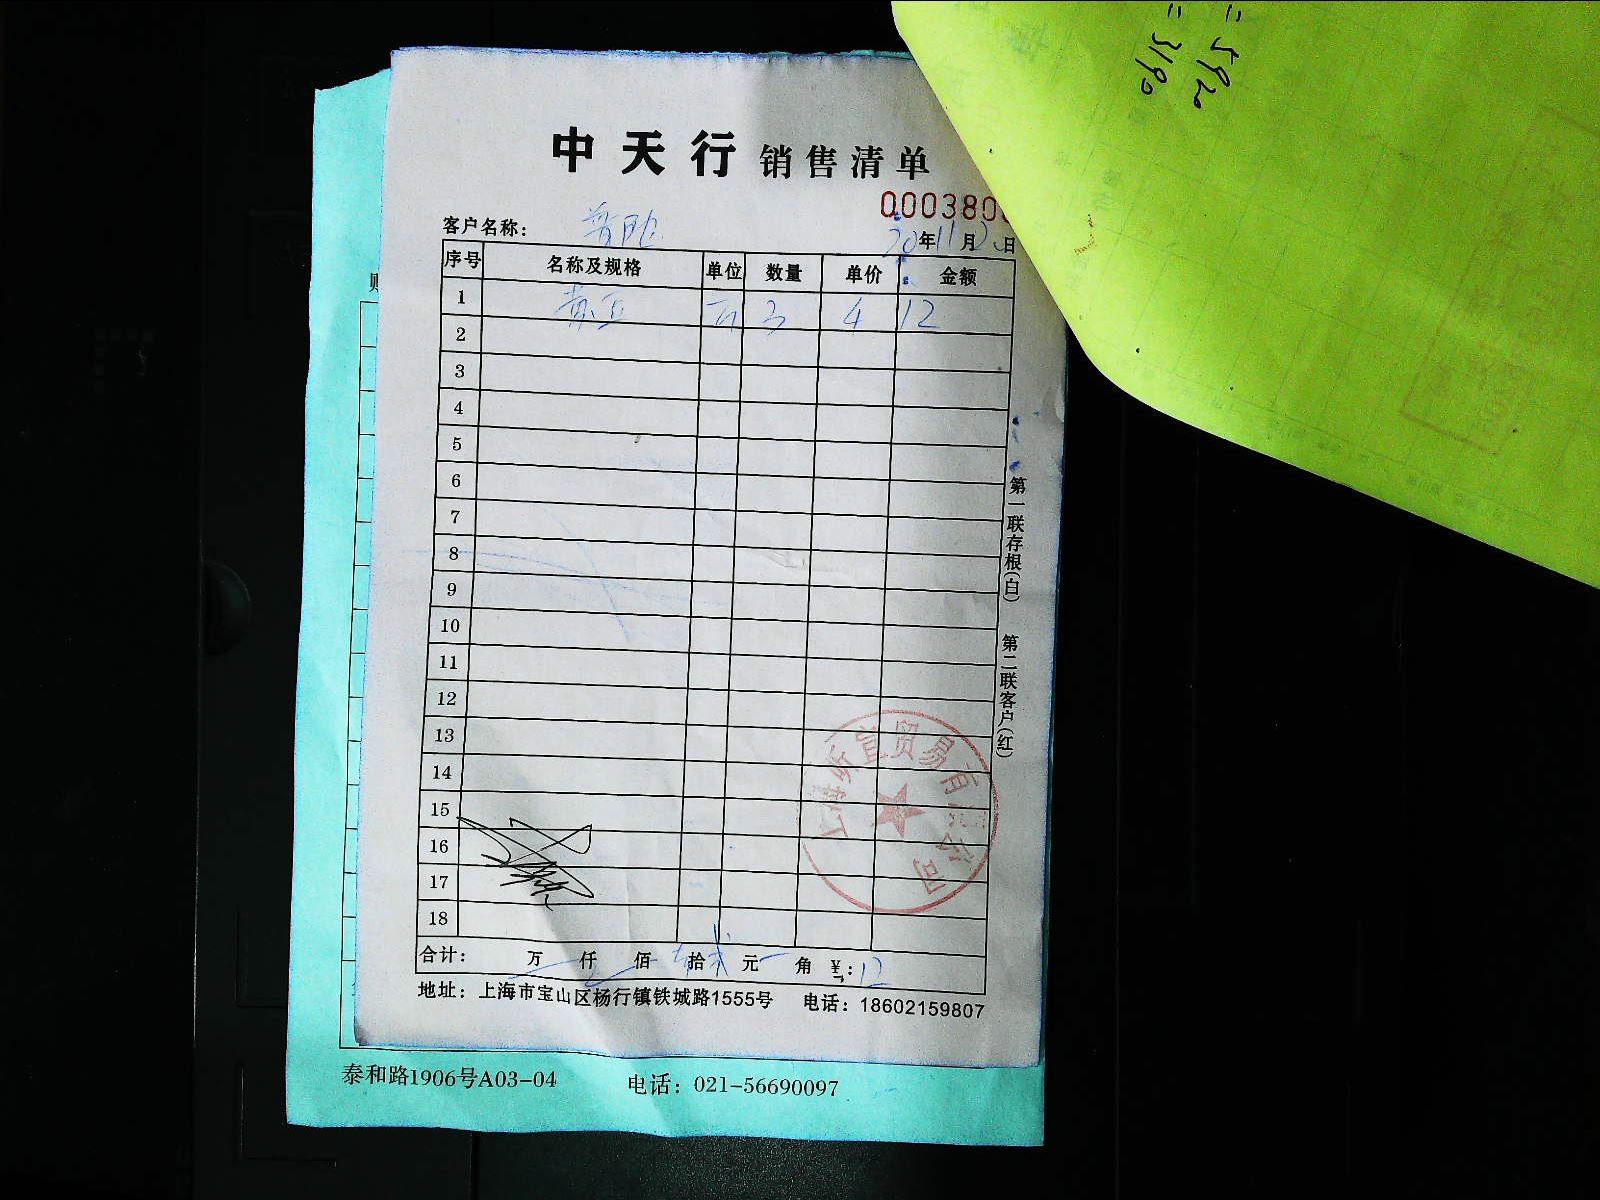 =5920
=3190
中天行 销售清单
000380
客户名称:
20年11月2日
序号 名称及规格 单位 数量 单价 金额
1 黄豆 3 4 12
2
3
4
5
6
7
8
9
10
11
12
13
14
15
16
17
18
合计: 万 仟 佰 拾 元 角 ¥:12
地址: 上海市宝山区杨行镇铁城路1555号 电话: 18602159807
第一联存根(白) 第二联客户(红)
宜贸易有限公司
泰和路1906号A03-04 电话: 021-56690097